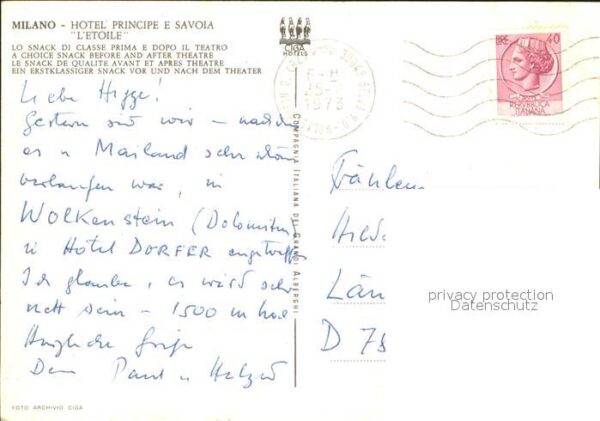 MILANO - HOTEL PRINCIPE E SAVOIA
"L'ETOILE"
LO SNACK DI CLASSE PRIMA E DOPO IL TEATRO
A CHOICE SNACK BEFORE AND AFTER THEATRE
LE SNACK DE QUALITE AVANT ET APRES THEATRE
EIN ERSTKLASSIGER SNACK VOR UND NACH DEM THEATER
CIGA
HOTELS
1973
LIRE 40
REPVBBLICA
ITALIANA
Liebe
Gestern sind wir - nachdem
es in Mailand sehr schön
verlaufen war, in
WOLKENSTEIN (Dolomiten)
in Hotel DORFER eingetroffen
Ich glaube, es wird sehr
nett sein - 1500 m hoch
Herzliche Grüße
Dein Paul u
COMPAGNIA ITALIANA DEI GRANDI ALBERGHI
Fräulein
Hild
Län
D 78
privacy protection
Datenschutz
FOTO ARCHIVIO CIGA